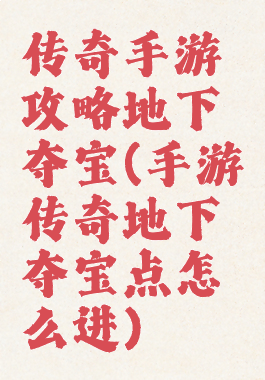 传奇手游
攻略地下
夺宝(手游
传奇地下
夺宝点怎
么进)